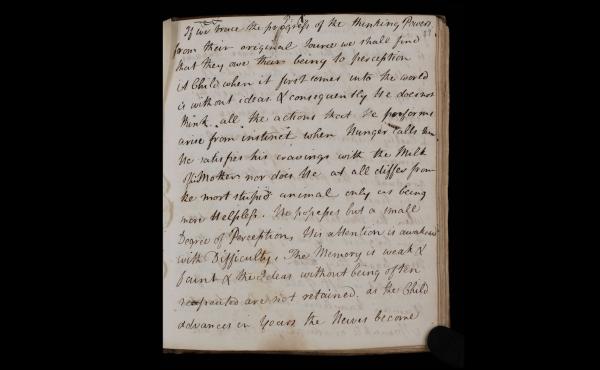 If we trace the progress of the thinking Powers
from their original Source we shall find
that they owe their being to perception
A Child when it first comes into the world
is without ideas & consequently He does not
think. all the actions that He performs
arise from instinct when Hunger calls
He satisfies his cravings with the Milk
of his Mother nor does He at all differ from
the most stupid animal only as being
more Helpless. He possesses but a small
Degree of Perception, His attention is awaked
with Difficulty, The Memory is weak &
faint & the Ideas without being often
repeated are not retained. as the Child
advances in Years the Nerves become